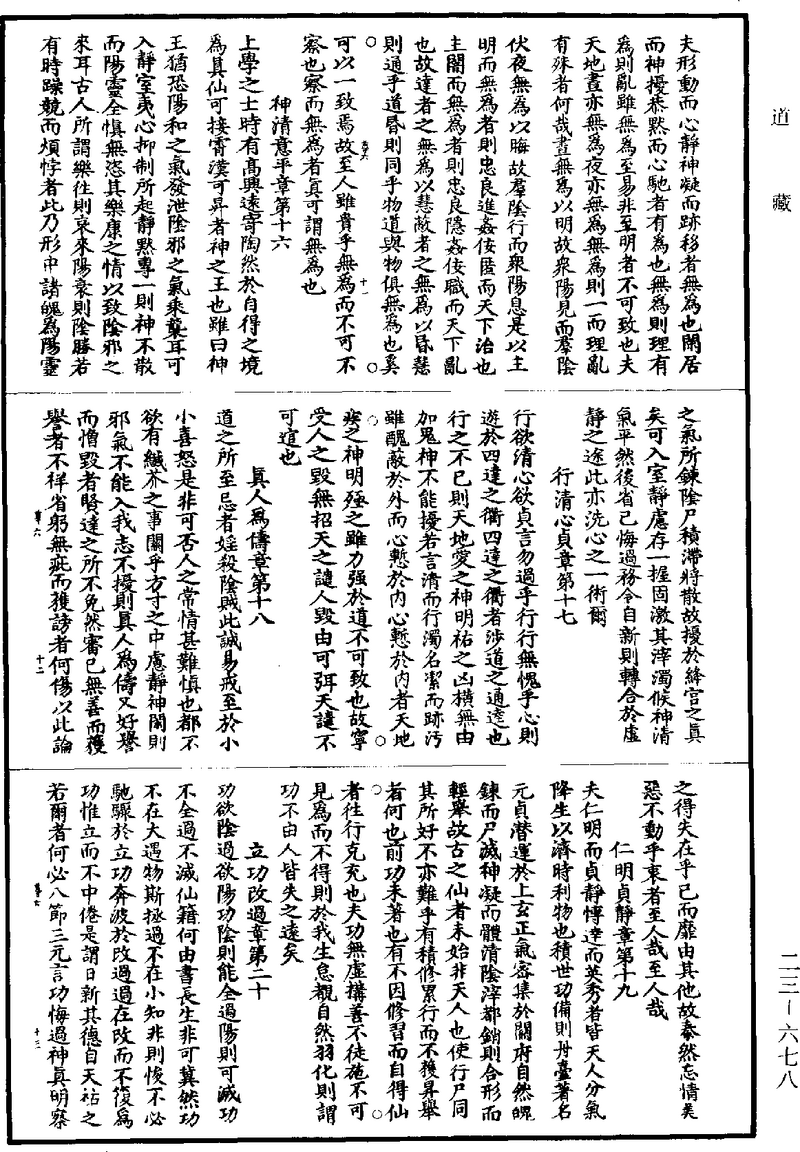 道藏
夫形動而心靜神凝而跡移者無為也閑居
而神擾恭默而心馳者有為也無為則理有
為則亂雖無為至易非至明者不可致也夫
天地晝亦無為夜亦無為無為則一而理亂
有殊者何哉晝無為以明故衆陽見而羣陰
伏夜無為以晦故羣陰行而衆陽息是以主
明而無為者則忠良進姦佞匿而天下治也
主闇而無為者則忠良隱姦佞職而天下亂
也故達者之無為以慧蔽者之無為以昏慧
則通乎道昏則同乎物道與物俱無為也奚
可以一致焉故至人雖貴乎無為而不可不
察也察而無為者真可謂無為也
神清意平章第十六
上學之士時有高興遠寄陶然於自得之境
為真仙可接霄漢可昇者神之王也雖曰神
王猶恐陽和之氣發泄陰邪之氣乘襲耳可
入靜室夷心抑制所起靜默專一則神不散
而陽靈全慎無恣其樂康之情以致陰邪之
來耳古人所謂樂往則哀來陽衰則陰勝若
有時躁競而煩悖者此乃形中諸魄為陽靈
之氣所鍊陰尸積滯將散故擾於絳宮之真
矣可入室靜慮存一握固激其滓濁候神清
氣平然後省己悔過務令自新則轉合於虛
靜之途此亦洗心之一術爾
行清心貞章第十七
行欲清心欲貞言勿過乎行行無愧乎心則
遊於四達之衢四達之衢者涉道之通逵也
行之不已則天地愛之神明祐之凶橫無由
加鬼神不能擾若言清而行濁名潔而跡污
雖醜蔽於外而心慙於內心慙於內者天地
疾之神明殛之雖力強於道不可致也故寧
受人之毀無招天之譴人毀由可弭天譴不
可逭也
真人為儔章第十八
道之所至忌者婬殺陰賊此誠易戒至於小
小喜怒是非可否人之常情甚難慎也都不
欲有纖芥之事關乎方寸之中慮靜神閑則
邪氣不能入我志不擾則真人為儔又好譽
而憎毀者賢達之所不免然審己無善而獲
譽者不祥省躬無疵而獲謗者何傷以此論
之得失在乎己而靡由其他故泰然忘情美
惡不動乎衷者至人哉至人哉
仁明貞靜章第十九
夫仁明而貞靜博達而英秀者皆天人分氣
降生以濟時利物也積世功備則丹臺著名
元貞潛運於上玄正氣密集於關府自然魄
鍊而尸滅神凝而體清陰滓都銷則合形而
輕舉故古之仙者未始非天人也使行尸同
其所好不亦難乎有積修累行而不獲昇舉
者何也前功未著也有不因修習而自得仙
者往行克充也夫功無虛搆善不徒施不可
見為而不得則於我生怠觀自然羽化則謂
功不由人皆失之遠矣
立功改過章第二十
功欲陰過欲陽功陰則能全過陽則可滅功
不全過不滅仙籍何由書長生非可冀然功
不在大遇物斯拯過不在小知非則悛不必
馳驟於立功奔波於改過過在改而不復為
功惟立而不中倦是謂日新其德自天祐之
若爾者何必八節三元言功悔過神真明察
二三－六七八